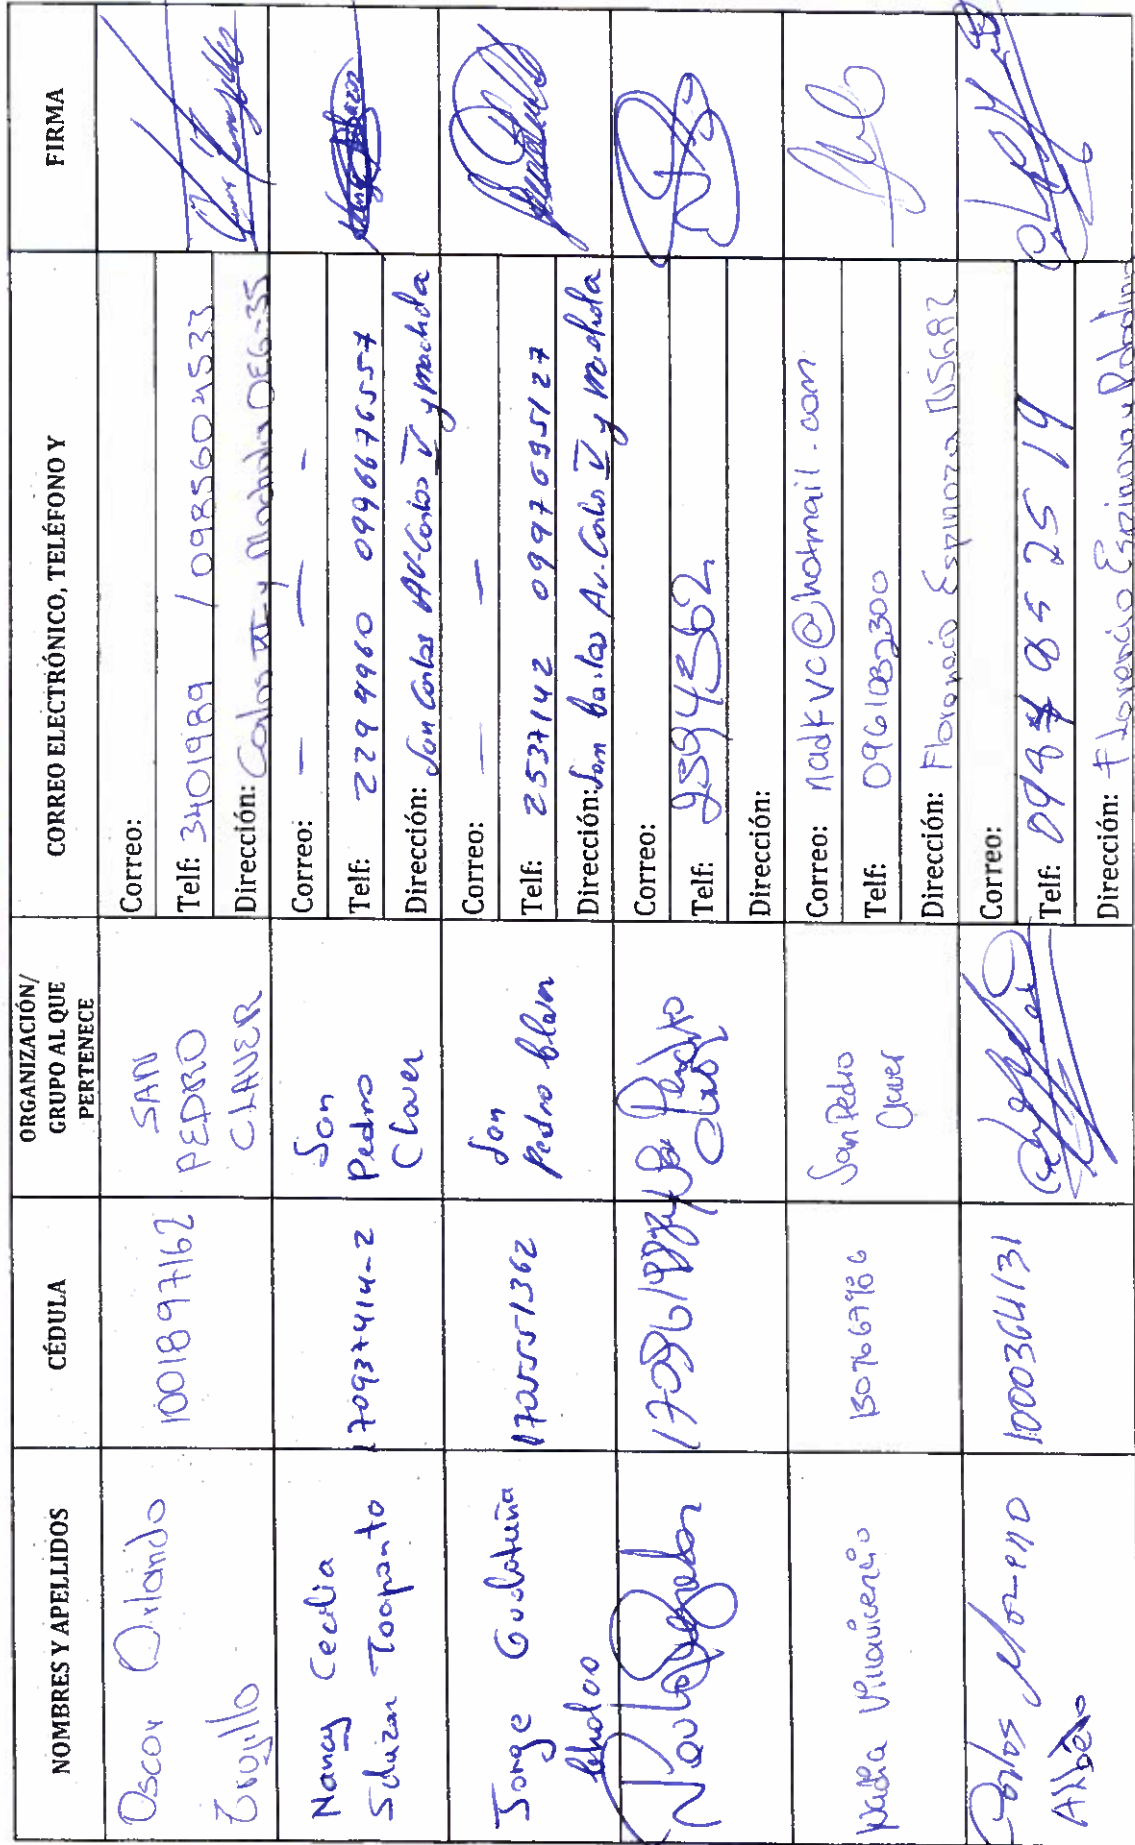 NOMBRES Y APELLIDOS CÉDULA ORGANIZACIÓN/ GRUPO AL QUE PERTENECE CORREO ELECTRÓNICO, TELÉFONO Y FIRMA
Oscar Orlando
Trujillo
1001897162
SAN
PEDRO
CLAVER
Correo:
Telf: 3401989 / 0985604533
Dirección: Carlos y Machala OE6-35
Nancy Cecilia
Toapanta
170937414-2
San
Pedro
Claver
Correo: — — -
Telf: 2294960 0996676557
Dirección: San Carlos AV-Carlos V y machala
Jorge
1705551362
San
Pedro
Correo: — —
Telf: 2537142 0997695127
Dirección: Av. Carlos V y machala
Correo:
Telf: 2594362
Dirección:
Nadia Villavicencio
1307667986
San Pedro
Claver
Correo: nadkvc@hotmail.com
Telf: 0961032300
Dirección: Florencio Espinoza N5682
Carlos Moreno
1000364131
Correo:
Telf: 25 19
Dirección: Florencio Espinoza